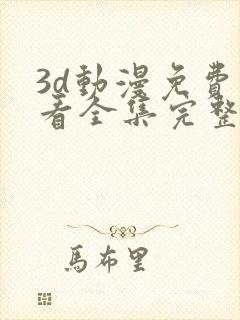 3d動漫免費
看全集完整
馬布里